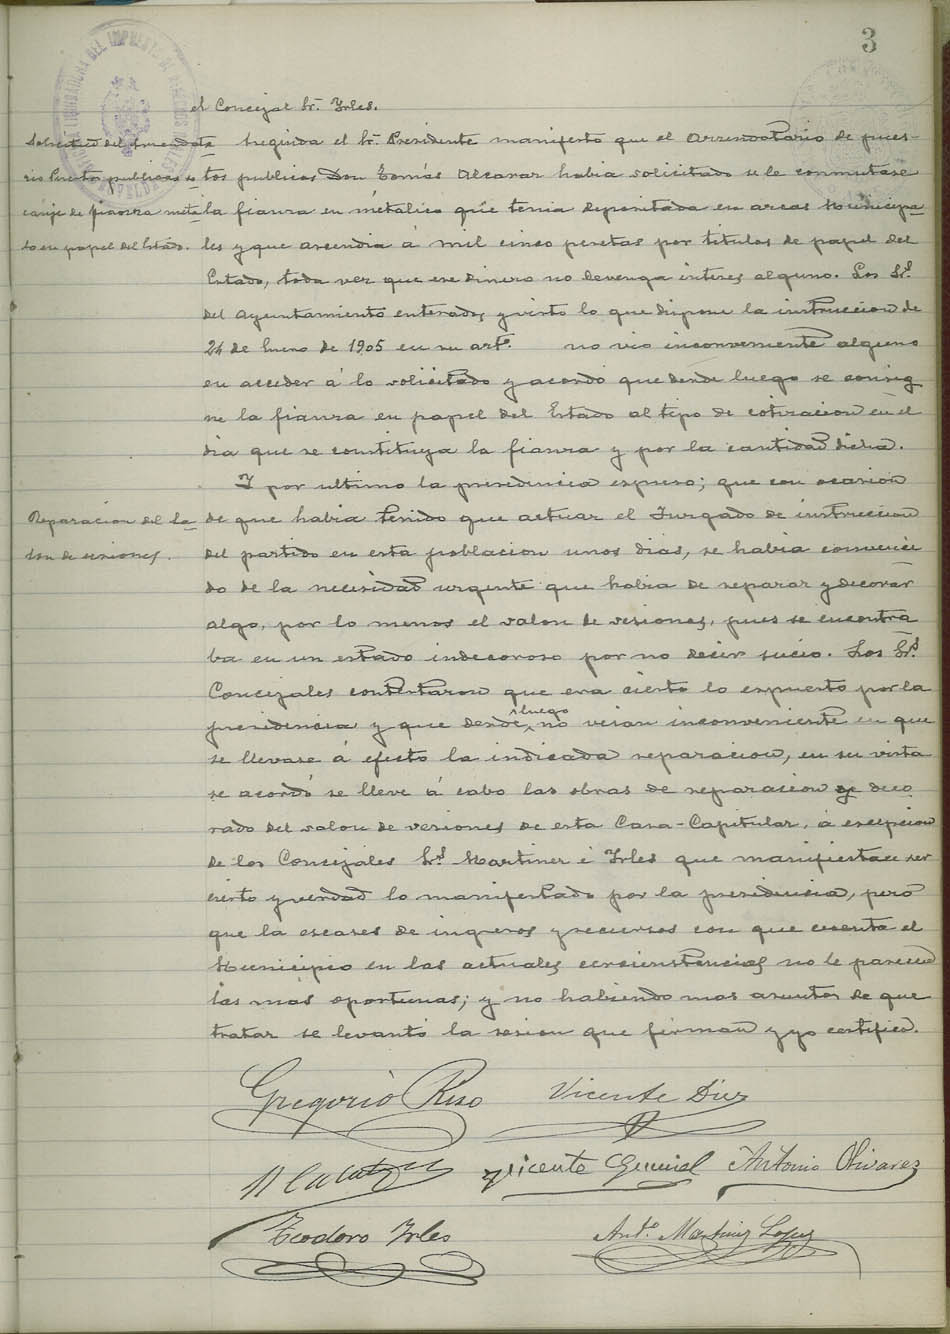 3
el Concejal Sr. Yrles.
Seguida el Sr. Presidente manifesto que el Arrendatario de pues-
tos publicos Don Tomás Alcaraz habia solicitado se le conmutase
la fianza en metálico que tenia depositada en arcas Municipa-
les y que ascendia á mil cinco pesetas por titulos de papel del
Estado, toda vez que ese dinero no devenga interes alguno. Los Srs.
del Ayuntamiento enterados y visto lo que dispone la instruccion de
24 de Enero de 1905 en su artº. no vio inconveniente alguno
en acceder á lo solicitado y acordó que desde luego se consig
ne la fianza en papel del Estado al tipo de cotizacion en el
dia que se constituya la fianza y por la cantidad dicha.
canje de fianza metali
co en papel del Estado.
Y por ultimo la presidencia expuso; que con ocasion
de que habia tenido que actuar el Juzgado de instruccion
del partido en esta poblacion unos dias, se habia convenci
do de la necesidad urgente que habia de reparar y decorar
algo, por lo menos el salon de sesiones, pues se encontra
ba en un estado indecoroso por no decir sucio. Los Srs.
Concejales contestaron que era cierto lo expuesto por la
presidencia y que desde luego no veian inconveniente en que
se llevase á efecto la indicada reparacion, en su vista
se acordó se lleve á cabo las obras de reparacion y deco
rado del salon de sesiones de esta Casa-Capitular, á excepcion
de los Concejales Srs. Martinez é Yrles que manifiestan ser
cierto y verdad lo manifestado por la presidencia, pero
que la escases de ingresos y recursos con que cuenta el
Municipio en las actuales circunstancias no le parecen
las mas oportunas; y no habiendo mas asuntos de que
tratar se levantó la sesion que firman y yo certifico.
Reparacion del Sa-
lon de sesiones.
Gregorio Rico Vicente Diez
Vicente Antonio Olivarez
Teodoro Yrles Antº. Martinez Lopez